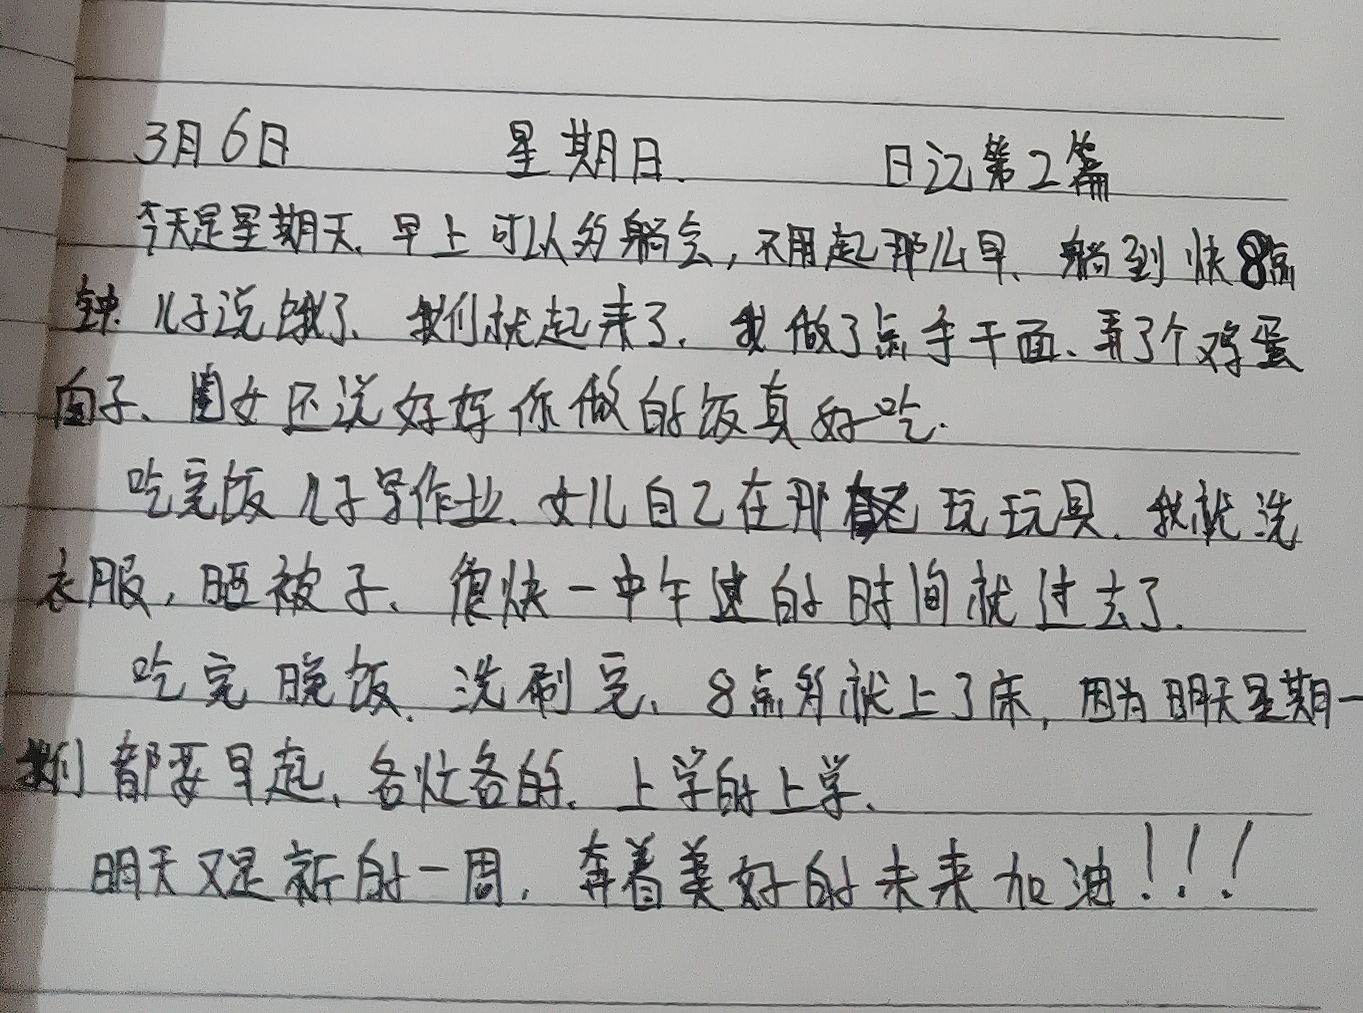 3月6日 星期日. 日记第2篇
今天是星期天、早上可以多躺会,不用起那么早、躺到快8点
钟.儿子说饿了、我们就起来了.我做了点手干面、弄了个鸡蛋
卤子、闺女还说好好你做的饭真好吃.
吃完饭儿子写作业.女儿自己在那玩玩具.我就洗
衣服,晒被子、很快一中午的时间就过去了.
吃完晚饭.洗刷完、8点多就上了床,因为明天星期一
我们都要早起、各忙各的.上学的上学、
明天又是新的一周,奔着美好的未来加油!!!